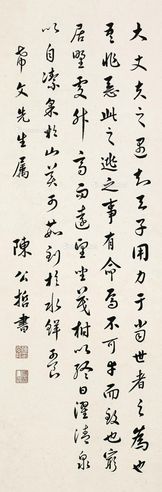 大丈夫之遇知天子用力于當世者之為也
吾非惡此之逃之事有命焉不可幸而致也窮
居野處升高而遠望坐茂樹以終日濯清泉
以自潔采於山美可茹釣於水鮮可食
希文先生属
陳公哲書